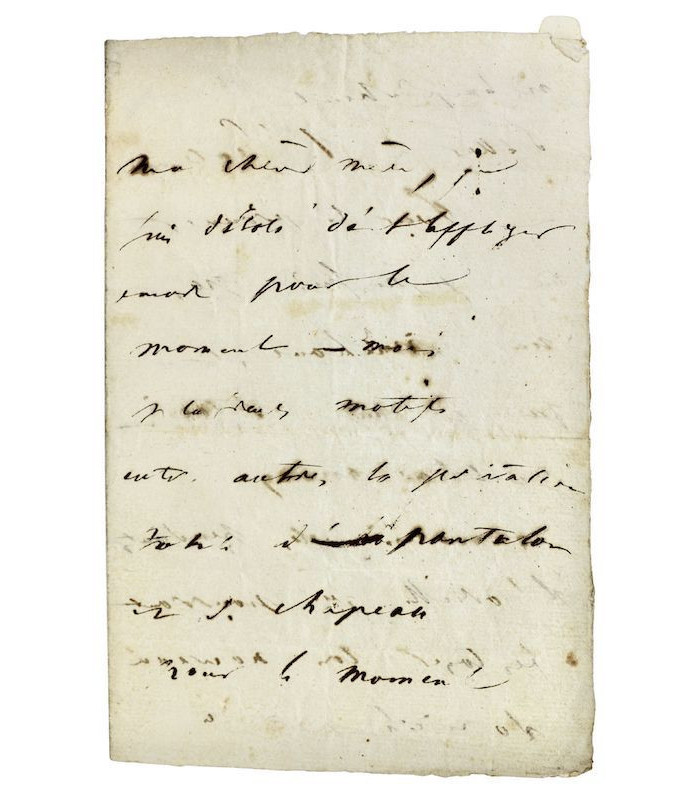 ma chère mère, je
suis désolé de t'affliger
encore pour le
moment – mais
plusieurs motifs
entre autres, la privation
totale de pantalon
et de chapeau
pour le moment